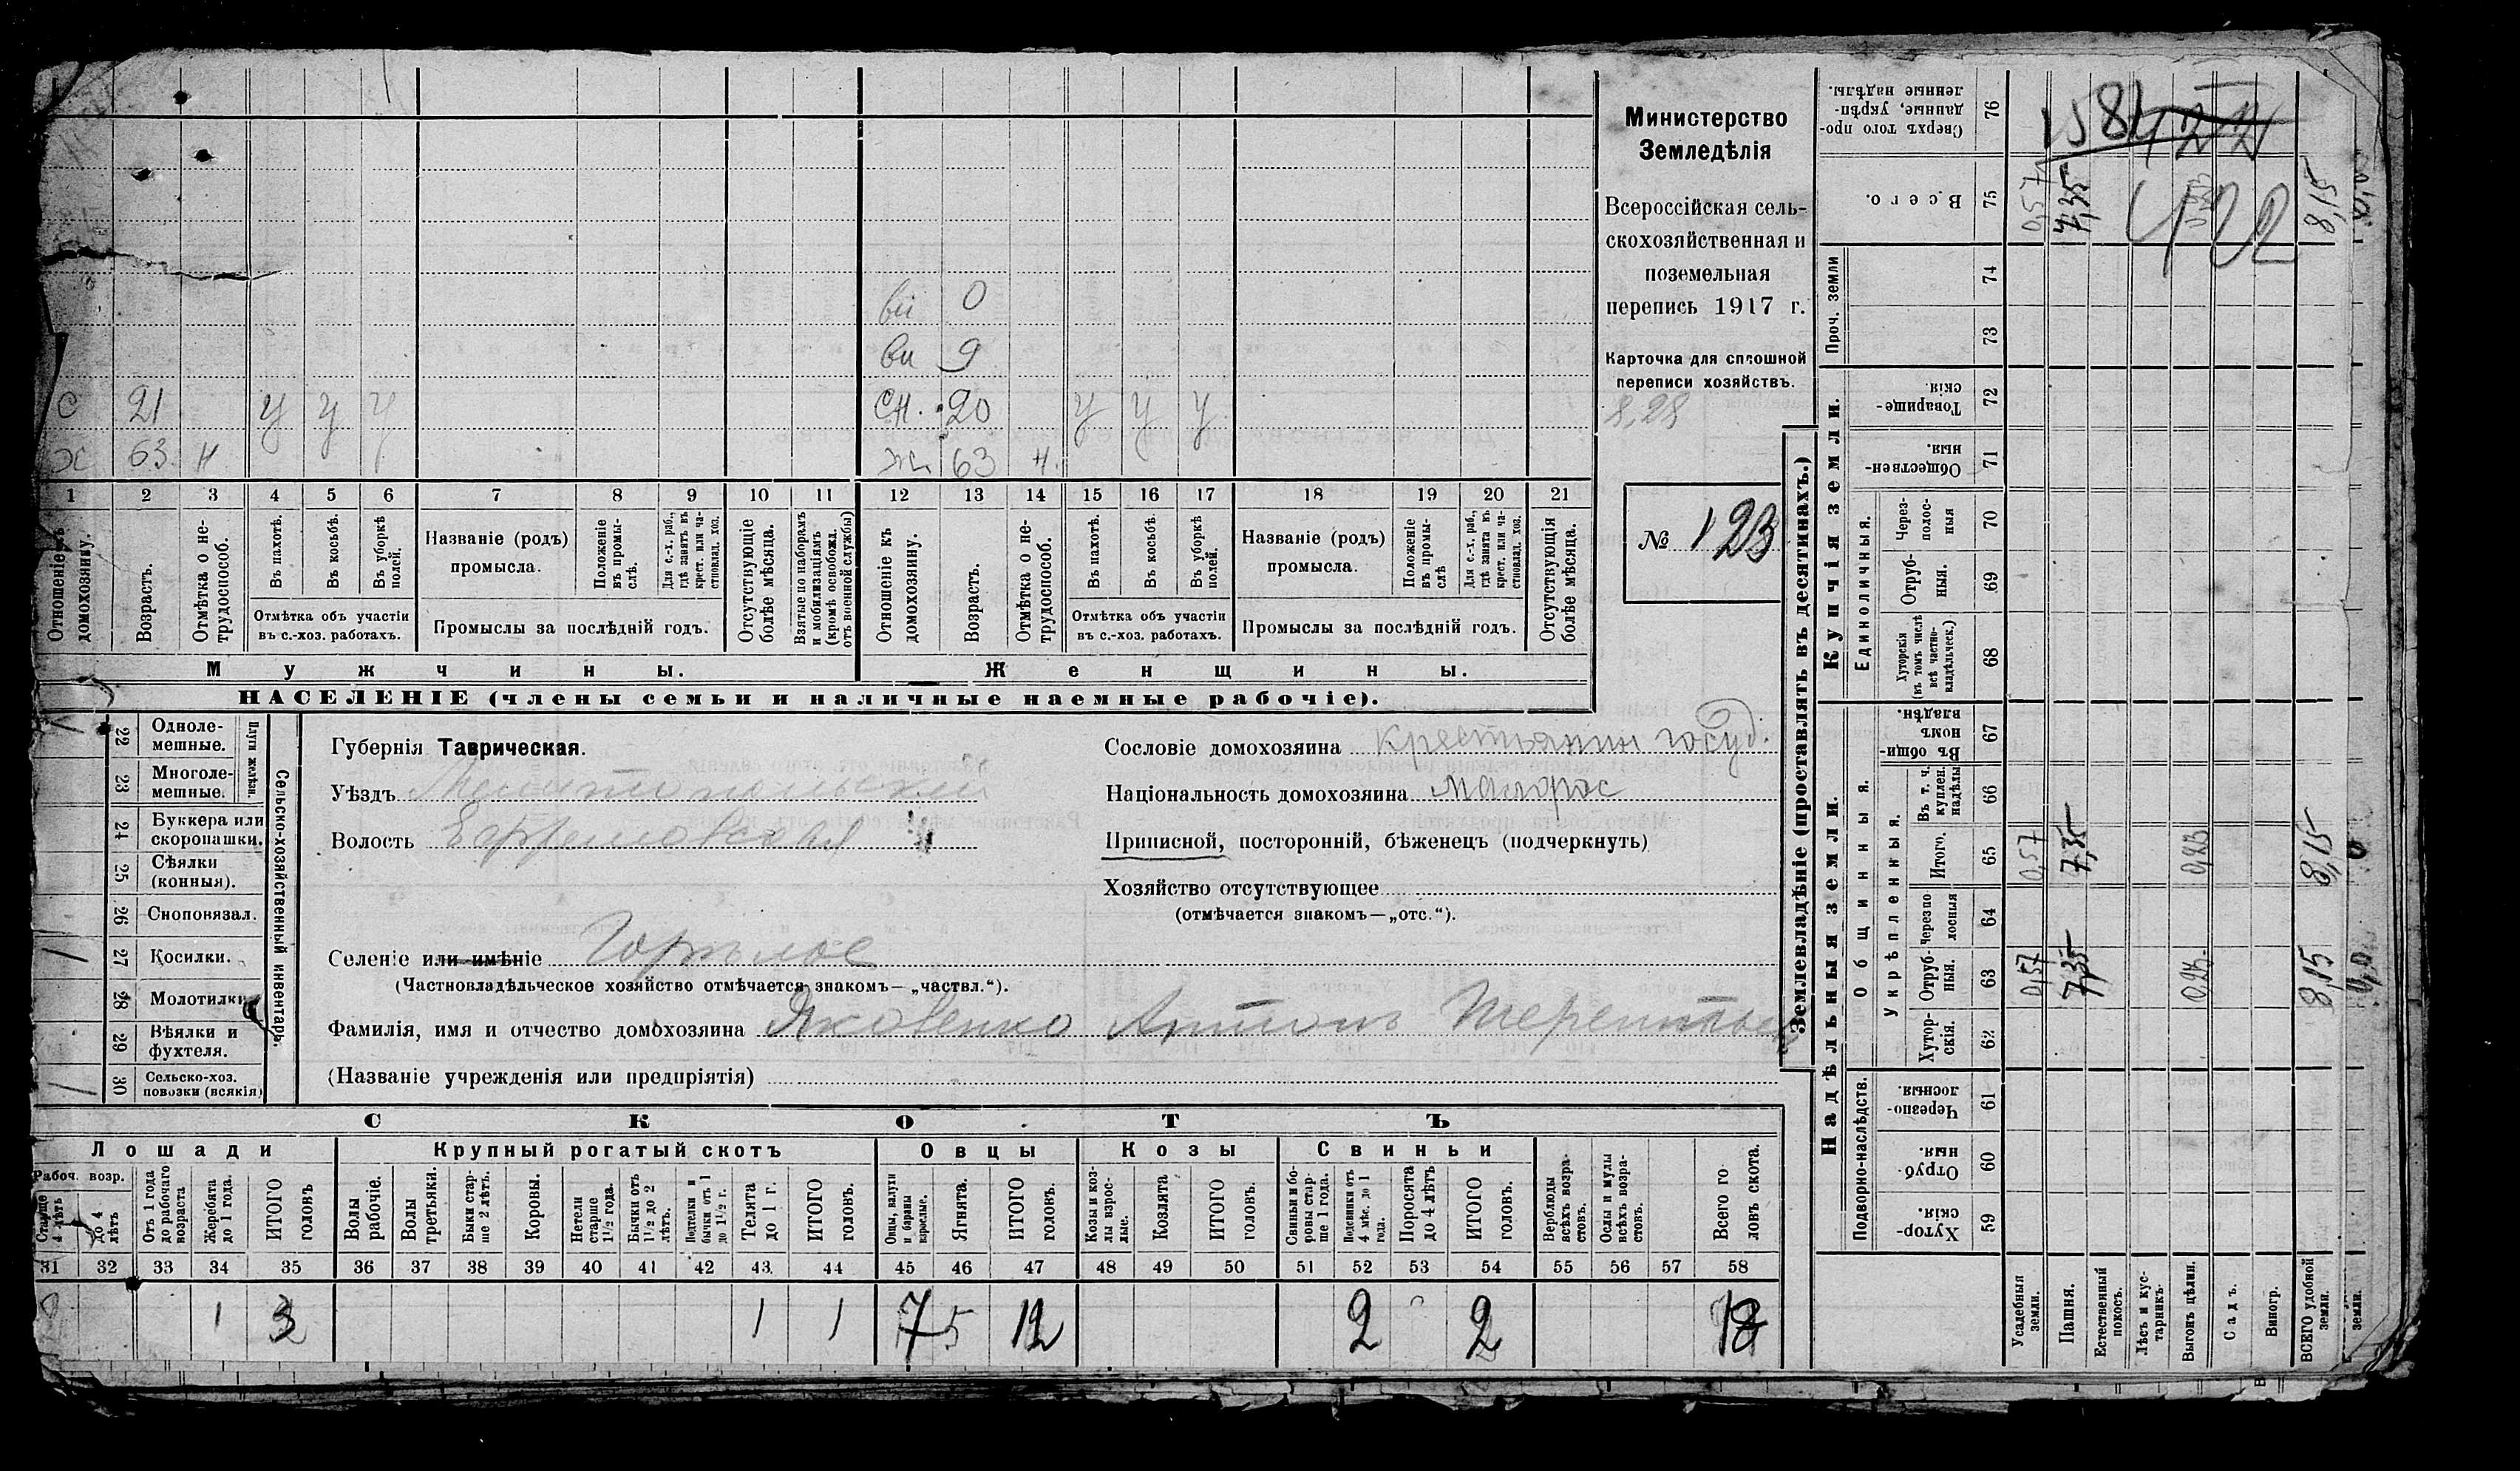 Министерство
Земледѣлія
Всероссійская сель-
скохозяйственная и
поземельная
перепись 1917 г.
Карточка для сплошной
переписи хозяйствъ.
8,28
№ 123
вн 0
вн 9
с 21 у у у сн. 20 у у у
ж 63 н ж 63 н.
1 2 3 4 5 6 7 8 9 10 11 12 13 14 15 16 17 18 19 20 21
Отношеніе къ домохозяину.
Возрастъ.
Отмѣтка о не-
трудоспособ.
Въ пахотѣ.
Въ косьбѣ.
Въ уборкѣ
полей.
Отмѣтка объ участіи
въ с.-хоз. работахъ.
Названіе (родъ)
промысла.
Положеніе
въ промы-
слѣ.
Для с.-х. раб.,
гдѣ занятъ въ
крест. или ча-
стновлад. хоз.
Промыслы за послѣдній годъ.
Отсутствующіе
болѣе мѣсяца.
Взятые по наборамъ
и мобилизаціямъ
(кромѣ освобожд.
отъ военной службы)
Отношеніе къ
домохозяину.
Возрастъ.
Отмѣтка о не-
трудоспособ.
Въ пахотѣ.
Въ косьбѣ.
Въ уборкѣ
полей.
Отмѣтка объ участіи
въ с.-хоз. работахъ.
Названіе (родъ)
промысла.
Положеніе
въ промы-
слѣ
Для с.-х. раб.,
гдѣ занята въ
крест. или ча-
стновлад. хоз.
Промыслы за послѣдній годъ.
Отсутствующія
болѣе мѣсяца.
Мужчины.
Женщины.
НАСЕЛЕНІЕ (члены семьи и наличные наемные рабочіе).
22 Одноле-
мешные.
23 Многоле-
мешные.
Плуги желѣзн.
24 Буккера или
скоропашки.
25 Сѣялки
(конныя).
26 Сноповязал.
27 Косилки.
28 Молотилки
29 Вѣялки и
фухтеля.
30 Сельско-хоз.
повозки (всякія)
Сельско-хозяйственный инвентарь.
Губернія Таврическая.
Уѣздъ Мелитопольскій
Волость Ефремовская
Селеніе или имѣніе Горѣлое
(Частновладѣльческое хозяйство отмѣчается знакомъ—„частвл.“).
Фамилія, имя и отчество домохозяина Яковенко Антонъ Терентьев
(Названіе учрежденія или предпріятія)
Сословіе домохозяина крестьянин госуд.
Національность домохозяина малорос
Приписной, посторонній, бѣженецъ (подчеркнуть)
Хозяйство отсутствующее
(отмѣчается знакомъ—„отс.“).
СКОТЪ
Лошади
Крупный рогатый скотъ
Овцы
Козы
Свиньи
Рабоч. возр.
Старше
4 лѣтъ
До 4
лѣтъ
Отъ 1 года
до рабочаго
возраста
Жеребята
до 1 года.
ИТОГО
головъ
Волы
рабочіе.
Волы
третьяки.
Быки стар-
ше 2 лѣтъ.
Коровы.
Нетели
старше
1½ года.
Бычки отъ
1½ до 2
лѣтъ.
Подтелки и
бычки отъ 1
до 1½ г.
Телята
до 1 г.
ИТОГО
головъ.
Овцы, валухи
и бараны
взрослые.
Ягнята.
ИТОГО
головъ.
Козы и коз-
лы взрос-
лые.
Козлята
ИТОГО
головъ.
Свиньи и бо-
ровы стар-
ше 1 года.
Подсвинки отъ
4 мѣс. до 1
года.
Поросята
до 4 лѣтъ
ИТОГО
головъ.
Верблюды
всѣхъ возра-
стовъ.
Ослы и мулы
всѣхъ возра-
стовъ.
Всего го-
ловъ скота.
31 32 33 34 35 36 37 38 39 40 41 42 43 44 45 46 47 48 49 50 51 52 53 54 55 56 57 58
1 3 1 1 7 5 12 2 2 18
Землевладѣніе (проставлять въ десятинахъ.)
Купчія земли.
Надѣльныя земли.
Сверхъ того про-
данные, укрѣп-
ленные надѣлы.
76
Всего.
75
0,57 7,35 8,15
422
Проч. земли
74
73
Товарище-
скія.
72
Обществен-
ныя.
71
Единоличныя.
Через-
полос-
ныя
70
Отруб-
ныя.
69
Хуторскія
(въ томъ числѣ
всѣ частно-
владѣльческ.)
68
Общинныя.
Въ общи-
номъ
владѣн.
67
Укрѣпленныя.
Въ т. ч.
куплен.
надѣлы
66
Итого.
65
0,57 7,35 0,23 8,15
Черезпо
лосныя
64
Отруб-
ныя.
63
0,57 7,35 0,23 8,15
Хутор-
скія.
62
Подворно-наслѣдств.
Черезпо-
лосныя.
61
Отруб-
ныя.
60
Хутор-
скія.
59
Усадебныя
земли.
Пашня.
Естественный
покосъ.
Лѣсъ и кус-
тарникъ.
Выгонъ цѣлин.
Садъ.
Виногр.
ВСЕГО удобной
земли.
земли.